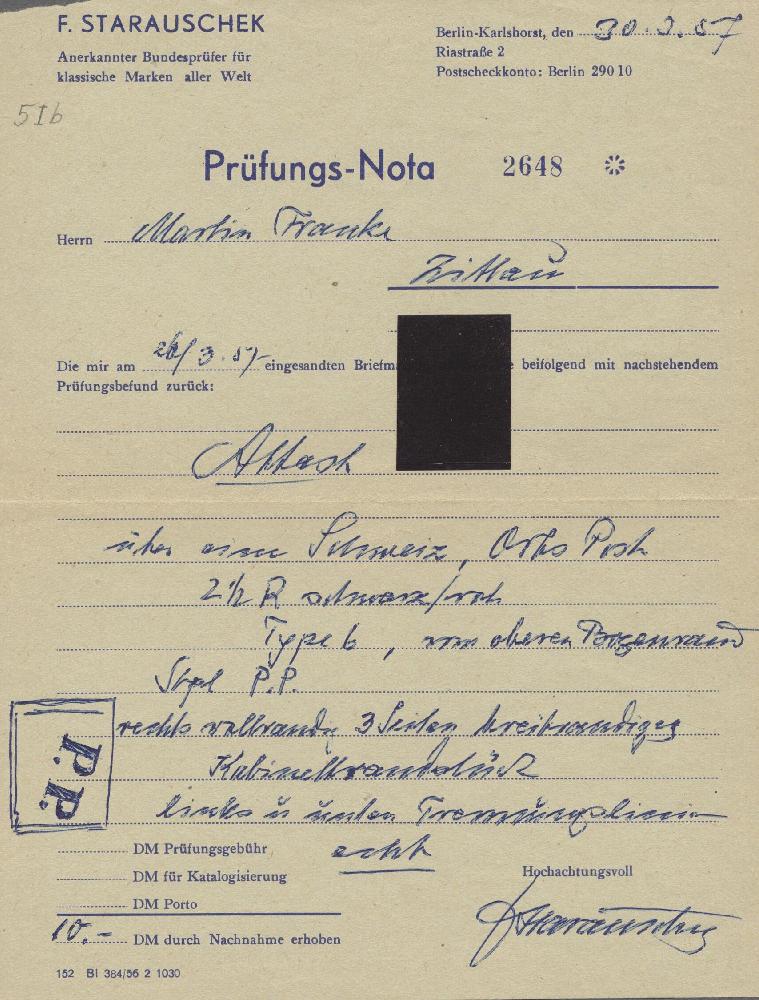 F. STARAUSCHEK
Anerkannter Bundesprüfer für
klassische Marken aller Welt
Berlin-Karlshorst, den 30.3.57
Riastraße 2
Postscheckkonto: Berlin 290 10
51b
Prüfungs-Nota 2648
Herrn Martin Franke
Zittau
Die mir am 26/3.57 eingesandten Briefm beifolgend mit nachstehendem
Prüfungsbefund zurück:
Attest
über eine Schweiz, Orts Post
2½ R schwarz/rot
Type 6, vom oberen Bogenrand
Stpl P.P.
rechts vollrandig 3 Seiten breitrandiges
Kabinettrandstück
links u unten Trennungslinien
P.P.
echt
DM Prüfungsgebühr
DM für Katalogisierung
DM Porto
10.- DM durch Nachnahme erhoben
Hochachtungsvoll
FStarauschek
152 BI 384/56 2 1030